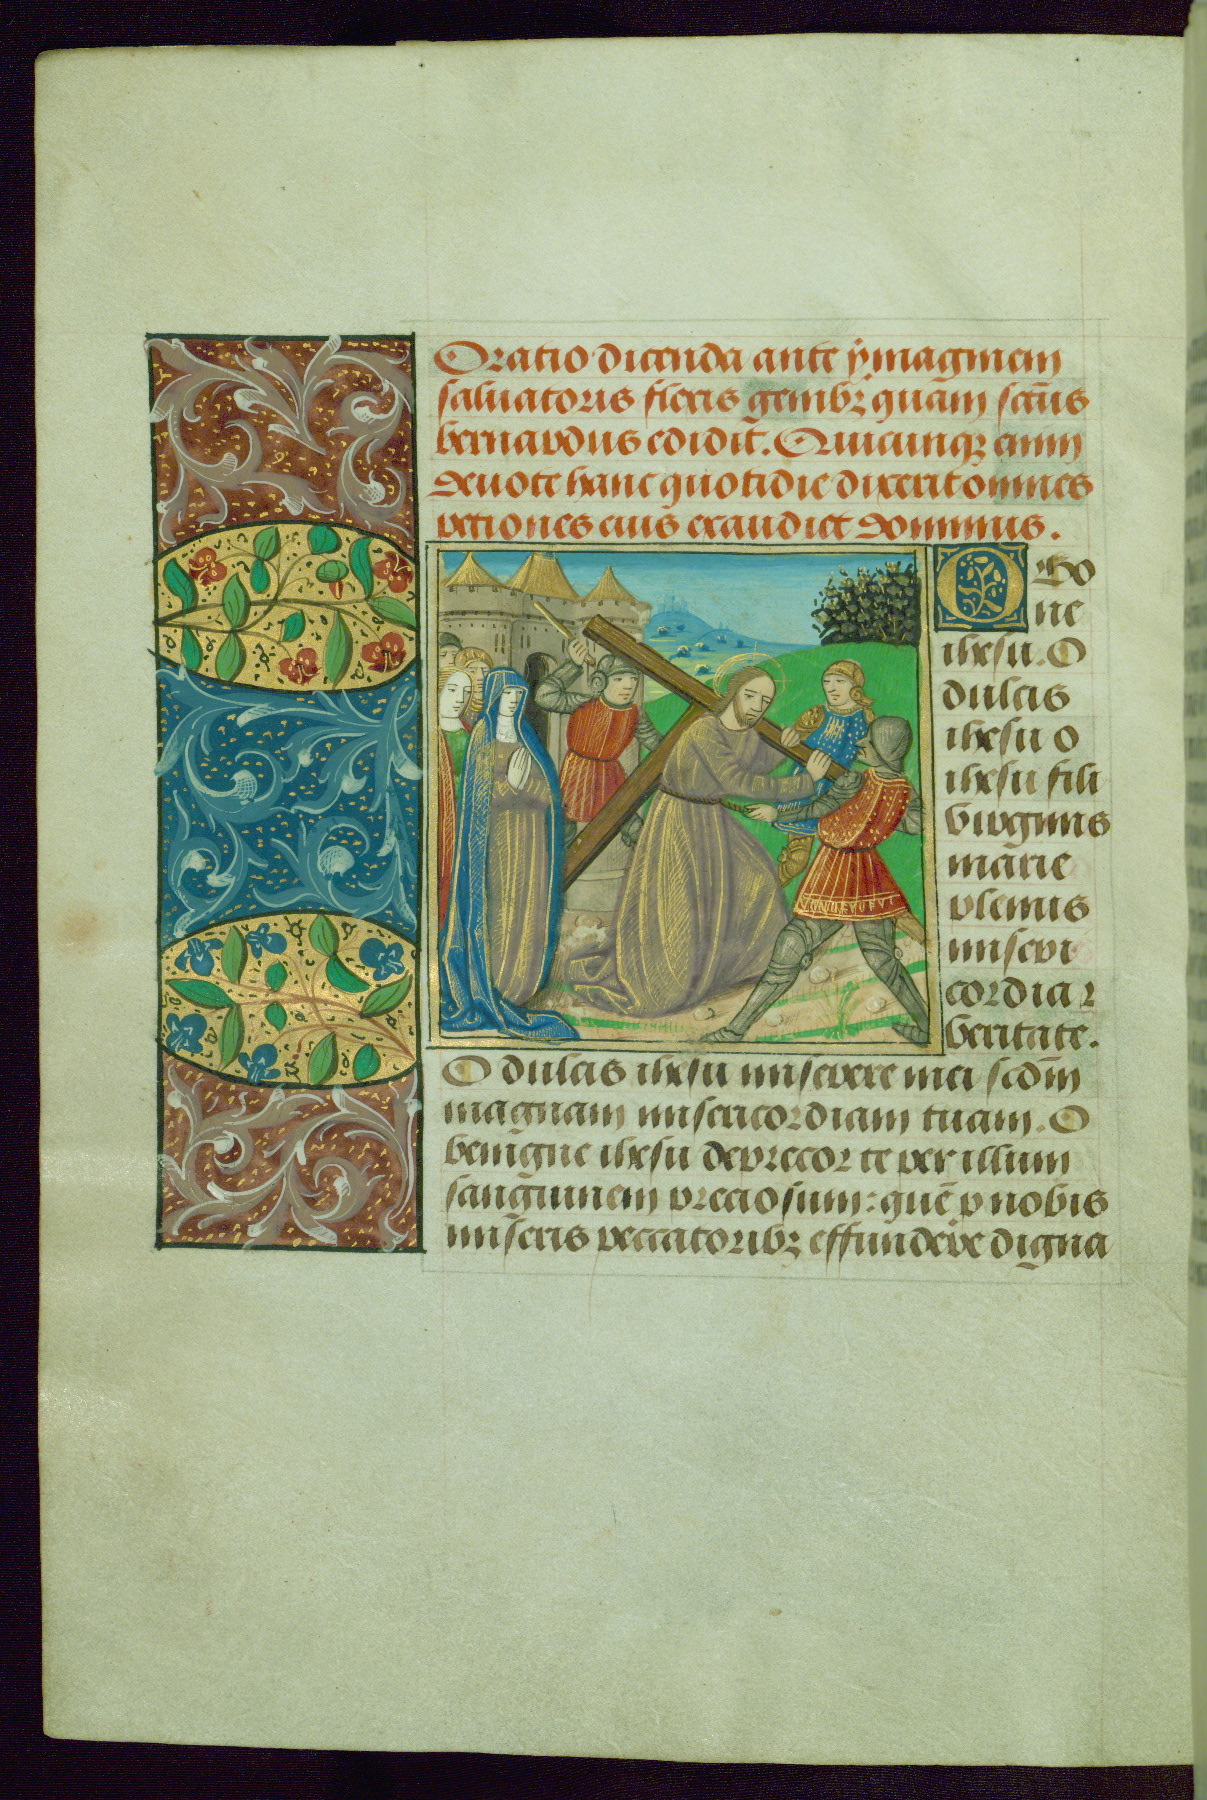 Oratio dicenda ante ẏmaginem
saluatoris flexis genibꝫ quam sctūs
bernardus edidit. Quicunqꝫ enim
deuote hanc quotidie dixerit omnes
petiones eius exaudiet dominus.
O bo
ne
ihesu. O
dulcis
ihesu o
ihesu fili
virginis
marie
plenus
miseri
cordia ꝛ
veritate.
O dulcis ihesu miserere mei scdm̄
magnam misericordiam tuam. O
benigne ihesu deprecor te per illum
sanguinem preciosum: quē p nobis
miseris peccatoribꝫ effundere digna